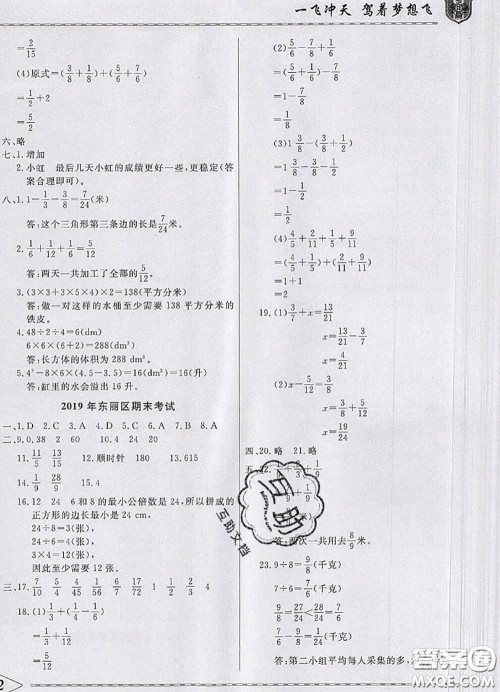 一飞冲天 驾着梦想飞
=2/15
(4)原式=(3/8+1/8)+(5/3+1/3)
=1/2+2
=5/2
六、略
七、1.增加
2.小虹 最后几天小虹的成绩更好一些,更稳定(答
案合理即可)。
八、1.1-1/3-3/8=7/24(米)
答:这个三角形第三条边的长是7/24米。
2.1/6+1/6+1/12=5/12
答:两天一共加工了全部的5/12。
3.(3×3+3×5×4)×2=138(平方分米)
答:做一对这样的水桶至少需要 138 平方分米的
铁皮。
4.48÷2÷4=6(dm)
6×6×(6+2)=288(dm³)
答:长方体的体积为 288 dm³。
5.4³-(8-3.5)×6×4=16(升)
答:缸里的水会溢出 16 升。
2019 年东丽区期末考试
一、1.D 2.C 3.A 4.D 5.B 6.C 7.B 8.A
二、9.0.38 2 60 10.15 15
11.11/5 13/15 12.顺时针 180 13.615
14.11/8 5/8 15.2/9
16.12 24 6 和 8 的最小公倍数是 24,所以拼成的
正方形的边长最小是 24 cm。
24÷8=3(张)
24÷6=4(张)
3×4=12(张)
因此至少需要 12 张。
三、17.7/10 5/4 1/21 5/24 17/24 1/2 1/4 4/7
18.(1)1/3+(1/4-1/6)
=1/3+1/12
=5/12
(2)5/6-7/8+1/6
=(5/6+1/6)-7/8
=1-7/8
=1/8
(3)1-(3/8+1/8)
=1-1/2
=1/2
(4)5/9+2/11+4/9+9/11
=(5/9+4/9)+(2/11+9/11)
=1+1
=2
19.(1)3/7+x=13/21
x=13/21-3/7
x=4/21
(2)x-5/12=3/8
x=3/8+5/12
x=19/24
四、20.略 21.略
答:两次一共用去8/9米。
23.9÷8=9/8(千克)
7÷6=7/6(千克)
答:第二小组平均每人采集的多,
互助
互助文档
答案